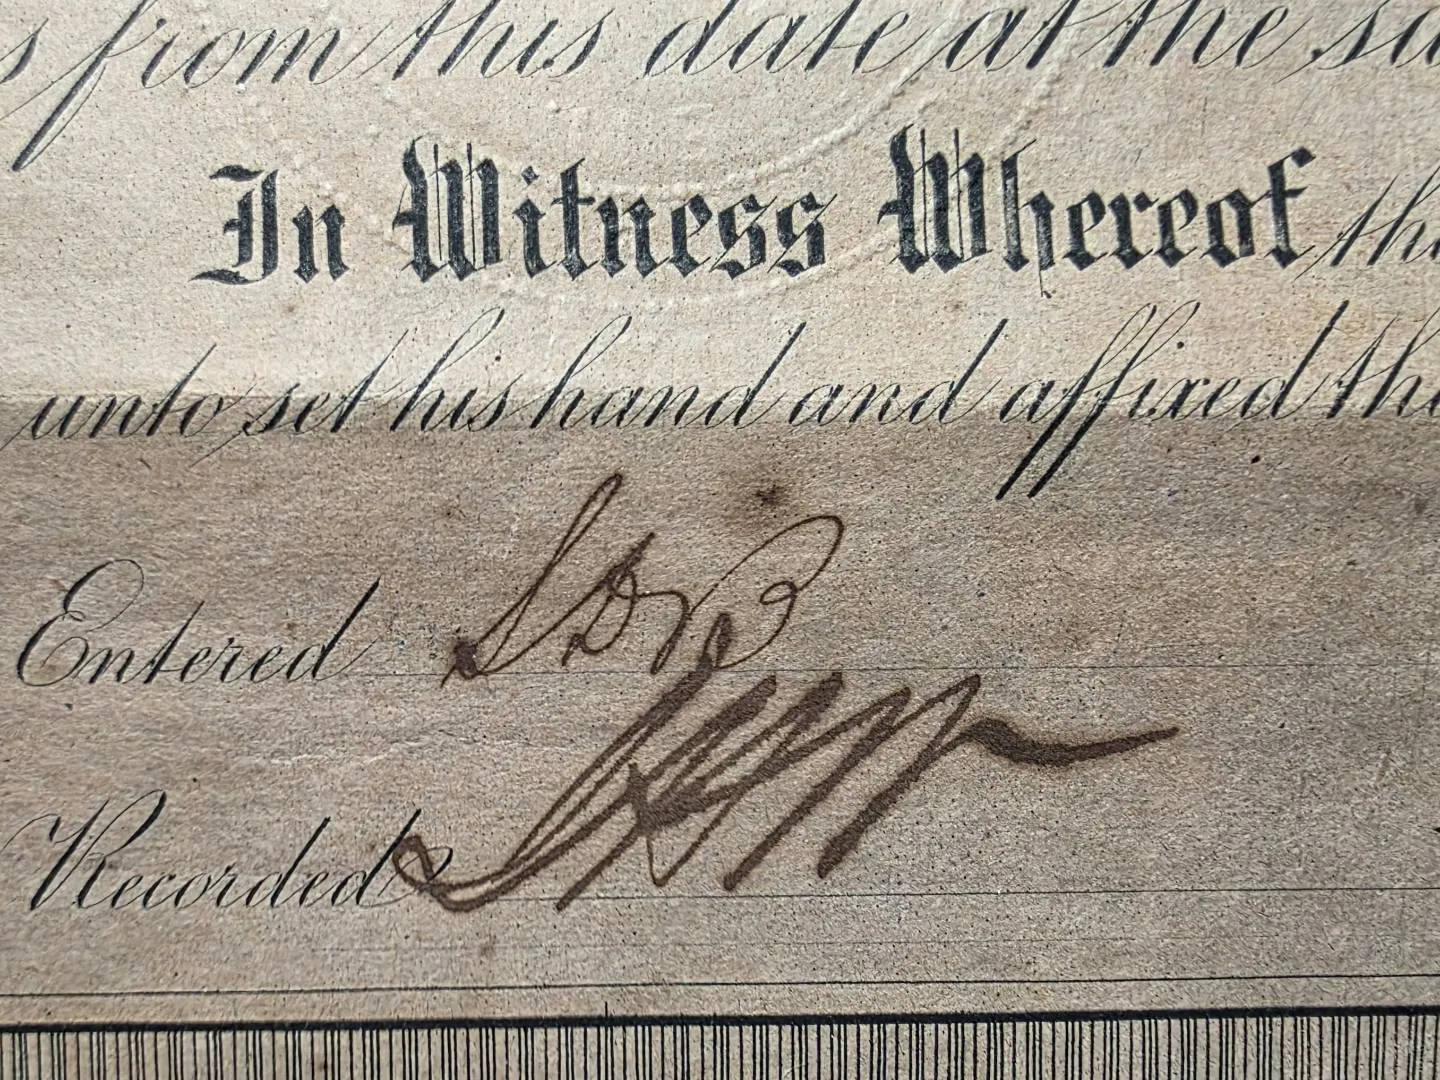 s from this date at the sa
In Witness Whereof the
unto set his hand and affixed the
Entered
Recorded